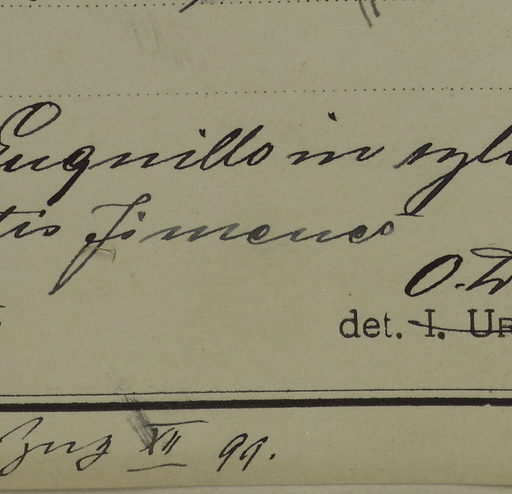 Euqnillo in sylv
tis Jimenes
O.
det. I. Ur
XII 99.